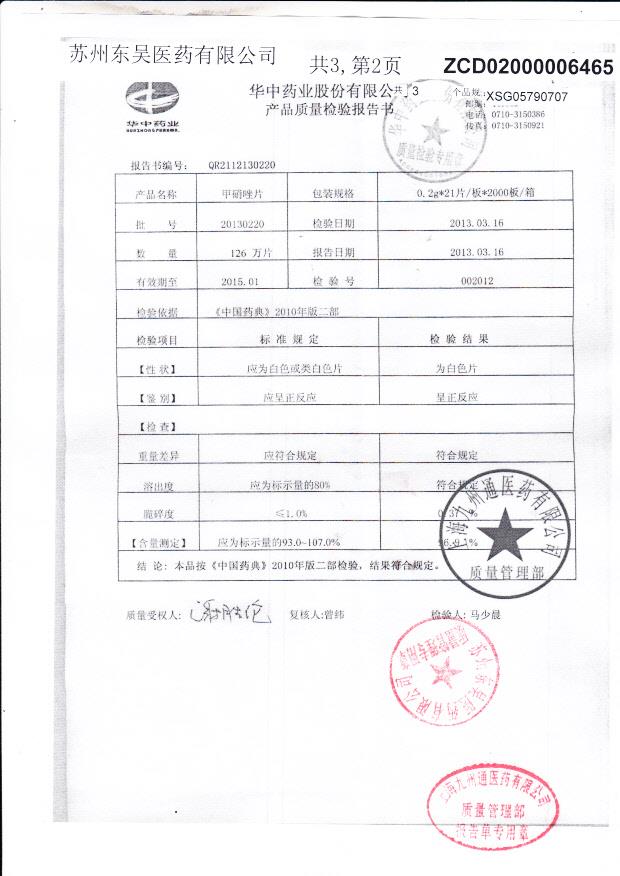 苏州东吴医药有限公司 共3,第2页 ZCD02000006465
华中药业 华中药业股份有限公 共 3 个品规: XSG05790707
HUAZHONG PHARMA 产品质量检验报告书 邮编:
电话: 0710-3150386
传真: 0710-3150921
华中药
质量检验专用章
报告书编号: QR2112130220
产品名称 甲硝唑片 包装规格 0.2g*21片/板*2000板/箱
批 号 20130220 检验日期 2013.03.16
数 量 126 万片 报告日期 2013.03.16
有效期至 2015.01 检 验 号 002012
检验依据 《中国药典》2010年版二部
检验项目 标 准 规 定 检 验 结 果
【性 状】 应为白色或类白色片 为白色片
【鉴 别】 应呈正反应 呈正反应
【检 查】
重量差异 应符合规定 符合规定
溶出度 应为标示量的80% 符合规定
脆碎度 ≤1.0%
【含量测定】 应为标示量的93.0~107.0% 96.1%
结 论: 本品按《中国药典》2010年版二部检验, 结果符合规定。
上海九州通医药有限公司
质量管理部
质量受权人: 复核人:曾纬 检验人:马少晨
苏州东吴医药有限公司
质量管理专用章
上海九州通医药有限公司
质量管理部
报告单专用章